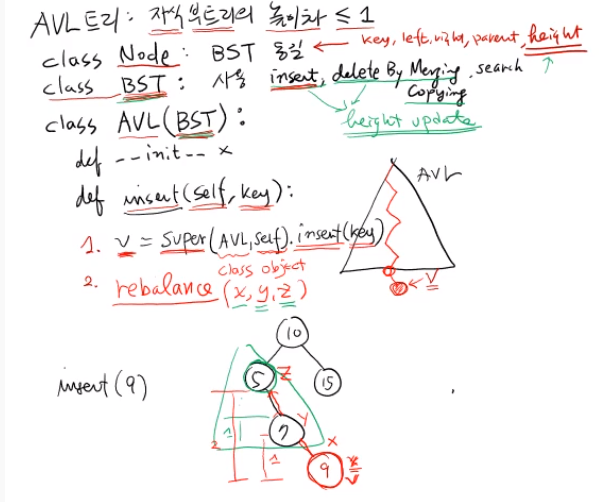 AVL트리: 자식부트리의 높이차 ≤ 1
class Node: BST 동일 ← key, left, right, parent, height
class BST: 사용 insert, delete By Merging, search
Copying
height update
class AVL(BST):
def --init-- x
def insert(self, key):
AVL
1. v = super(AVL, self).insert(key)
class object
v
2. rebalance (x, y, z)
10
insert(9)
5 z
15
7 y
1
2
1
x
9 x
v